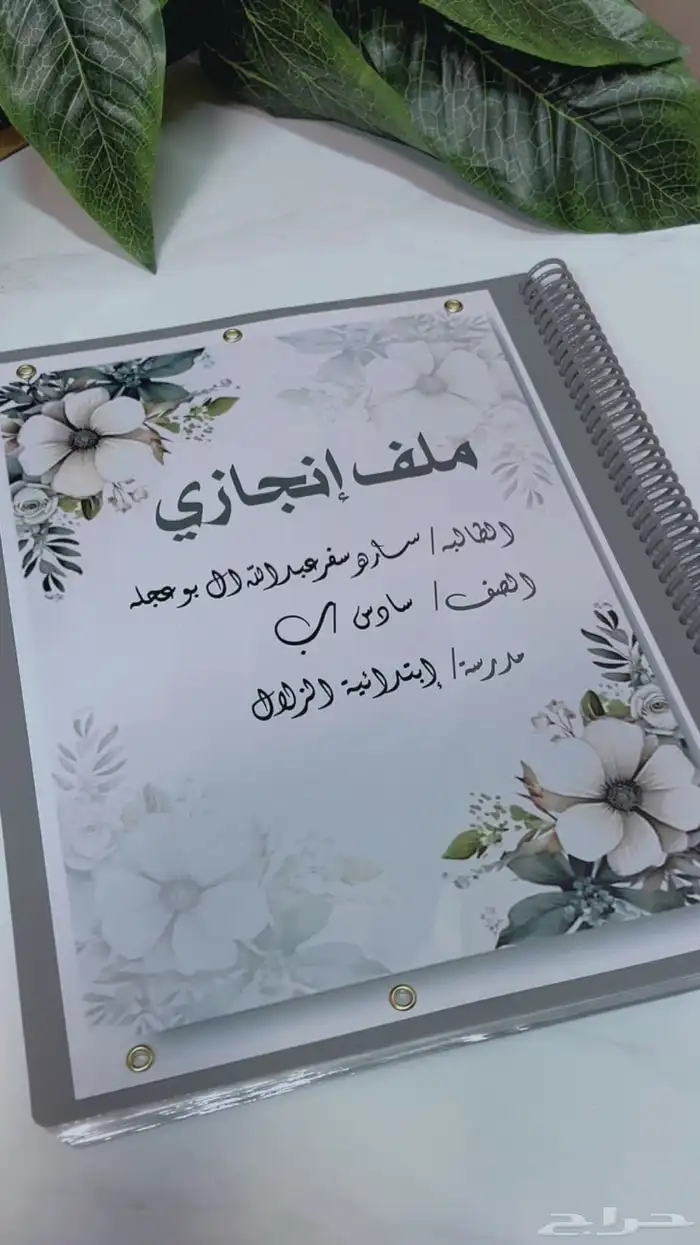 ملف إنجازي
الطالبه / ساره سفر عبدالله ال بو عجله
الصف / سادس / ب
مدرسة / إبتدائية الزلال
حراج